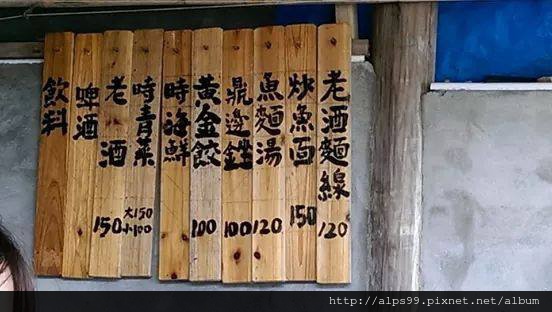 老酒麵線 120
炒魚面 150
魚麵湯 120
鼎邊銼 100
黃金餃 100
時海鮮
時青菜 大150 小100
老酒 150
啤酒
飲料
http://alps99.pixnet.net/album